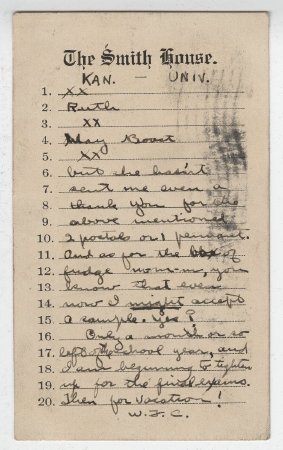 The Smith House.
KAN. — UNIV.
1. XX
2. Ruth
3. XX
4. May Boast
5. XX
6. but she hasn't
7. sent me even a
8. thank you for the
9. above mentioned
10. 2 postals or 1 pennant.
11. And as for the box of
12. fudge mom-m, you
13. know that even
14. now I might accept
15. a sample. Yes?
16. Only a month or so
17. left of school year, and
18. I am beginning to tighten
19. up for the final exams.
20. Then for vacation!
W.J.C.